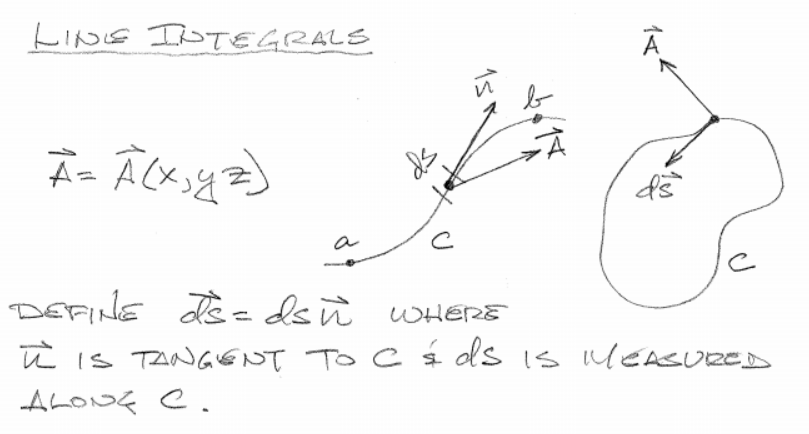 LINE INTEGRALS
A⃗ = A⃗(x, y z)
n⃗
b
ds
A⃗
a
C
A⃗
ds⃗
C
DEFINE ds⃗ = ds n⃗ WHERE
n⃗ IS TANGENT TO C & ds IS MEASURED
ALONG C.